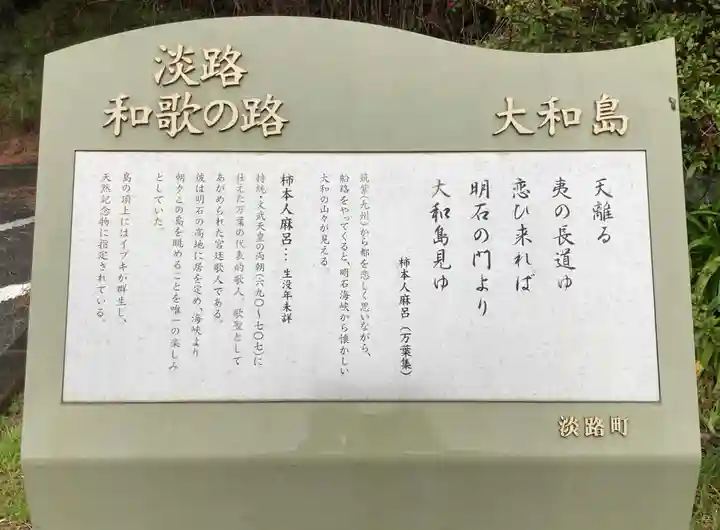 淡路
和歌の路
大和島
天離る
夷の長道ゆ
恋ひ来れば
明石の門より
大和島見ゆ
柿本人麻呂(万葉集)
筑紫(九州)から都を恋しく思いながら、
船路をやってくると、明石海峡から懐かしい
大和の山々が見える
柿本人麻呂… 生没年未詳
持統・文武天皇の両朝(六九〇〜七〇七)に
仕えた万葉の代表的歌人。歌聖として
あがめられた宮廷歌人である。
彼は明石の高地に居を定め、海峡より
朝夕この島を眺めることを唯一の楽しみ
としていた。
島の頂上にはイブキが群生し、
天然記念物に指定されている。
淡路町